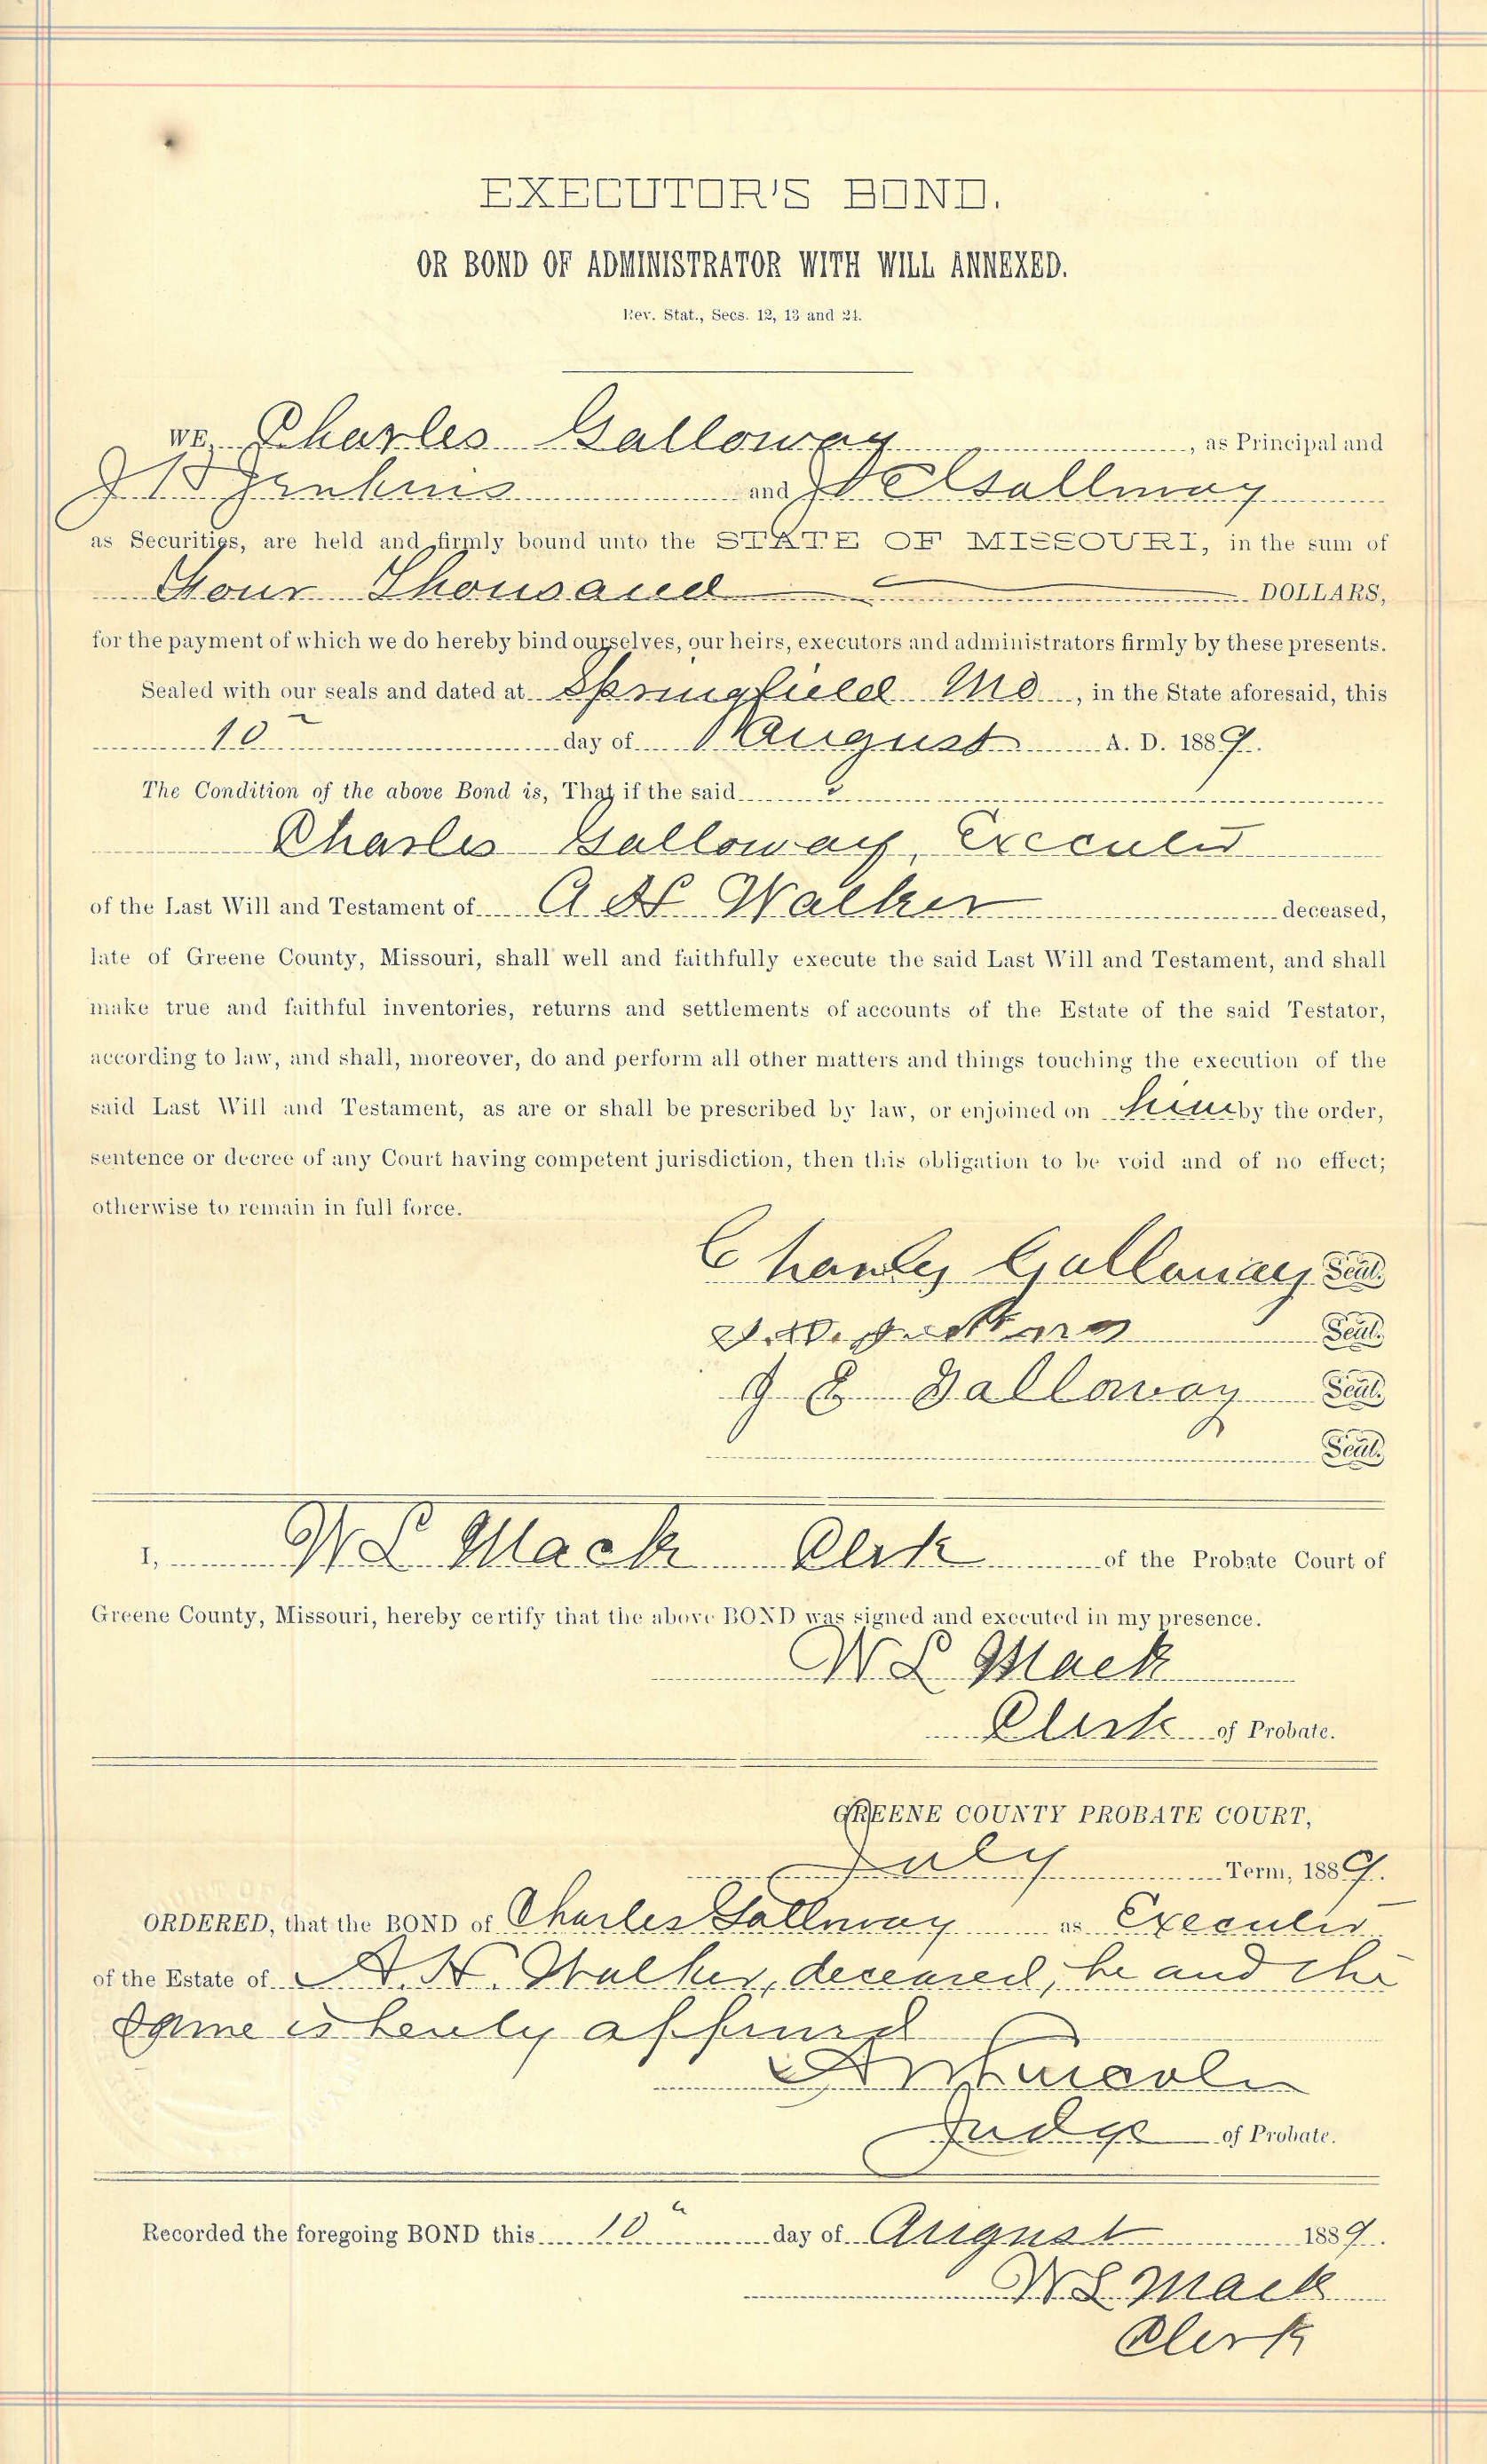 EXECUTOR'S BOND.
OR BOND OF ADMINISTRATOR WITH WILL ANNEXED.
Rev. Stat., Secs. 12, 13 and 24.
WE, Charles Galloway, as Principal and
J Jenkins and J E Galloway
as Securities, are held and firmly bound unto the STATE OF MISSOURI, in the sum of
Four Thousand DOLLARS,
for the payment of which we do hereby bind ourselves, our heirs, executors and administrators firmly by these presents.
Sealed with our seals and dated at Springfield Mo, in the State aforesaid, this
10 day of August A. D. 1889.
The Condition of the above Bond is, That if the said
Charles Galloway, Executor
of the Last Will and Testament of A H Walker deceased,
late of Greene County, Missouri, shall well and faithfully execute the said Last Will and Testament, and shall
make true and faithful inventories, returns and settlements of accounts of the Estate of the said Testator,
according to law, and shall, moreover, do and perform all other matters and things touching the execution of the
said Last Will and Testament, as are or shall be prescribed by law, or enjoined on him by the order,
sentence or decree of any Court having competent jurisdiction, then this obligation to be void and of no effect;
otherwise to remain in full force.
Charley Galloway Seal.
Seal.
J E Galloway Seal.
Seal.
I, W L Mack Clerk of the Probate Court of
Greene County, Missouri, hereby certify that the above BOND was signed and executed in my presence.
W L Mack
Clerk of Probate.
GREENE COUNTY PROBATE COURT,
July Term, 1889.
ORDERED, that the BOND of Charles Galloway as Executor
of the Estate of A. H. Walker, deceased, be and the
same is hereby approved
Lincoln
Judge of Probate.
Recorded the foregoing BOND this 10 day of August 1889.
W L Mack
Clerk